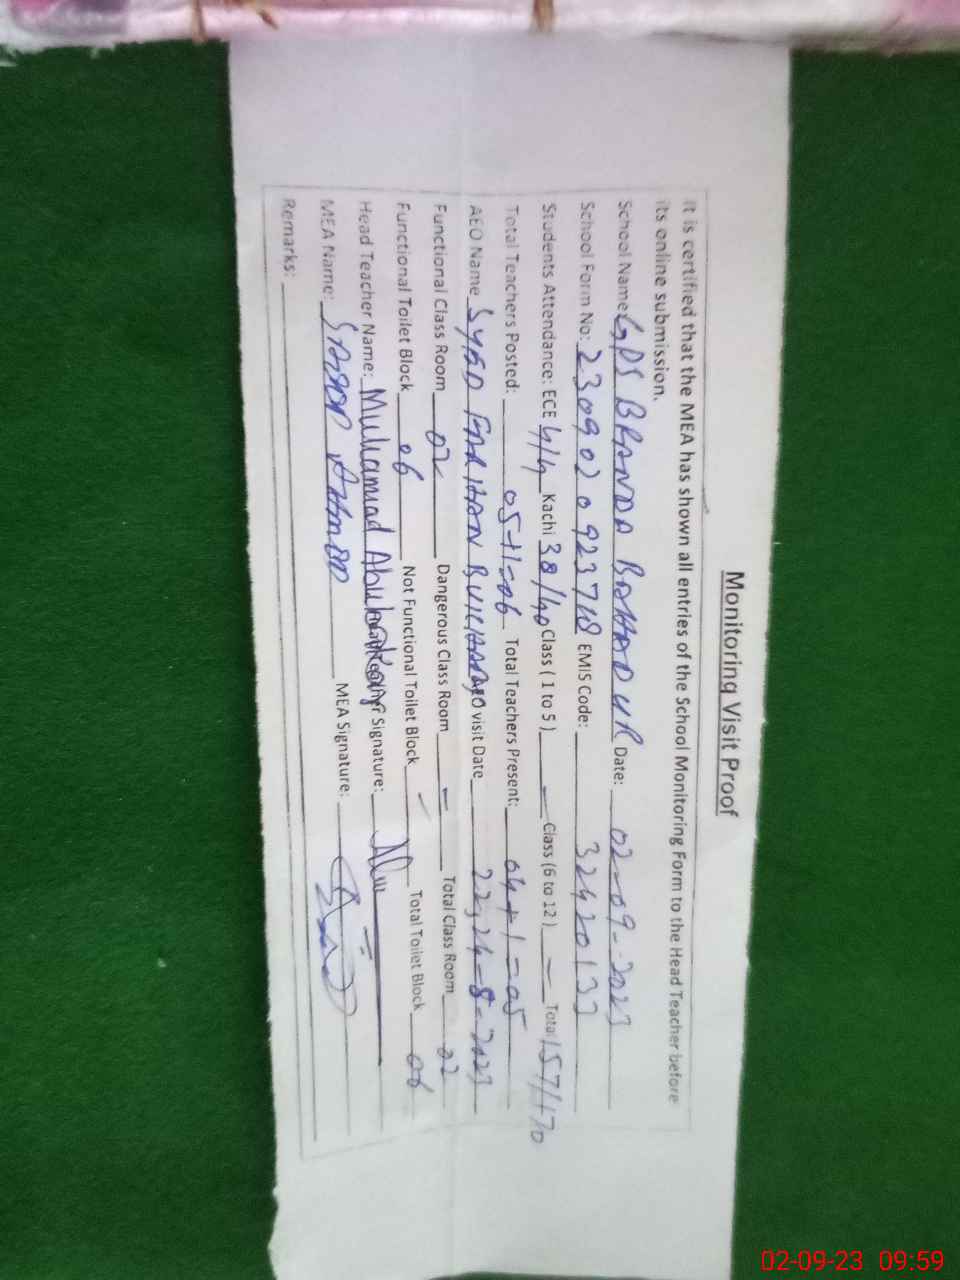 Monitoring Visit Proof
It is certified that the MEA has shown all entries of the School Monitoring Form to the Head Teacher before
its online submission.
School Name GPS BRANDA BAHADUR Date: 02-09-2023
School Form No: 2309020923718 EMIS Code: 32420133
Students Attendance: ECE 4/4 Kachi 38/40 Class (1 to 5) — Class (6 to 12) — Total 157/170
Total Teachers Posted: 05+1=06 Total Teachers Present: 04+1=05
AEO Name SYED FARHAN BUKHARI AEO visit Date 22,24-8-2023
Functional Class Room 02 Dangerous Class Room — Total Class Room 02
Functional Toilet Block 06 Not Functional Toilet Block — Total Toilet Block 06
Head Teacher Name: Muhammad Abubakar Signature:
MEA Name: AHMAD MEA Signature:
Remarks:
02-09-23 09:59